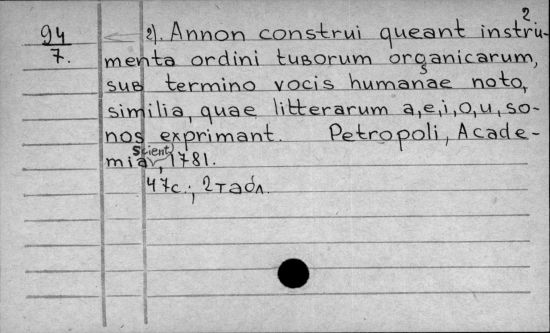 94/7. 2). Annon construi queant instru-
menta ordini tuborum organicarum,
sub termino vocis humanae noto,
similia, quae litterarum a,e,i,o,u, so-
nos exprimant. Petropoli, Acade-
mia Scient, 1781.
47с.; 2табл.